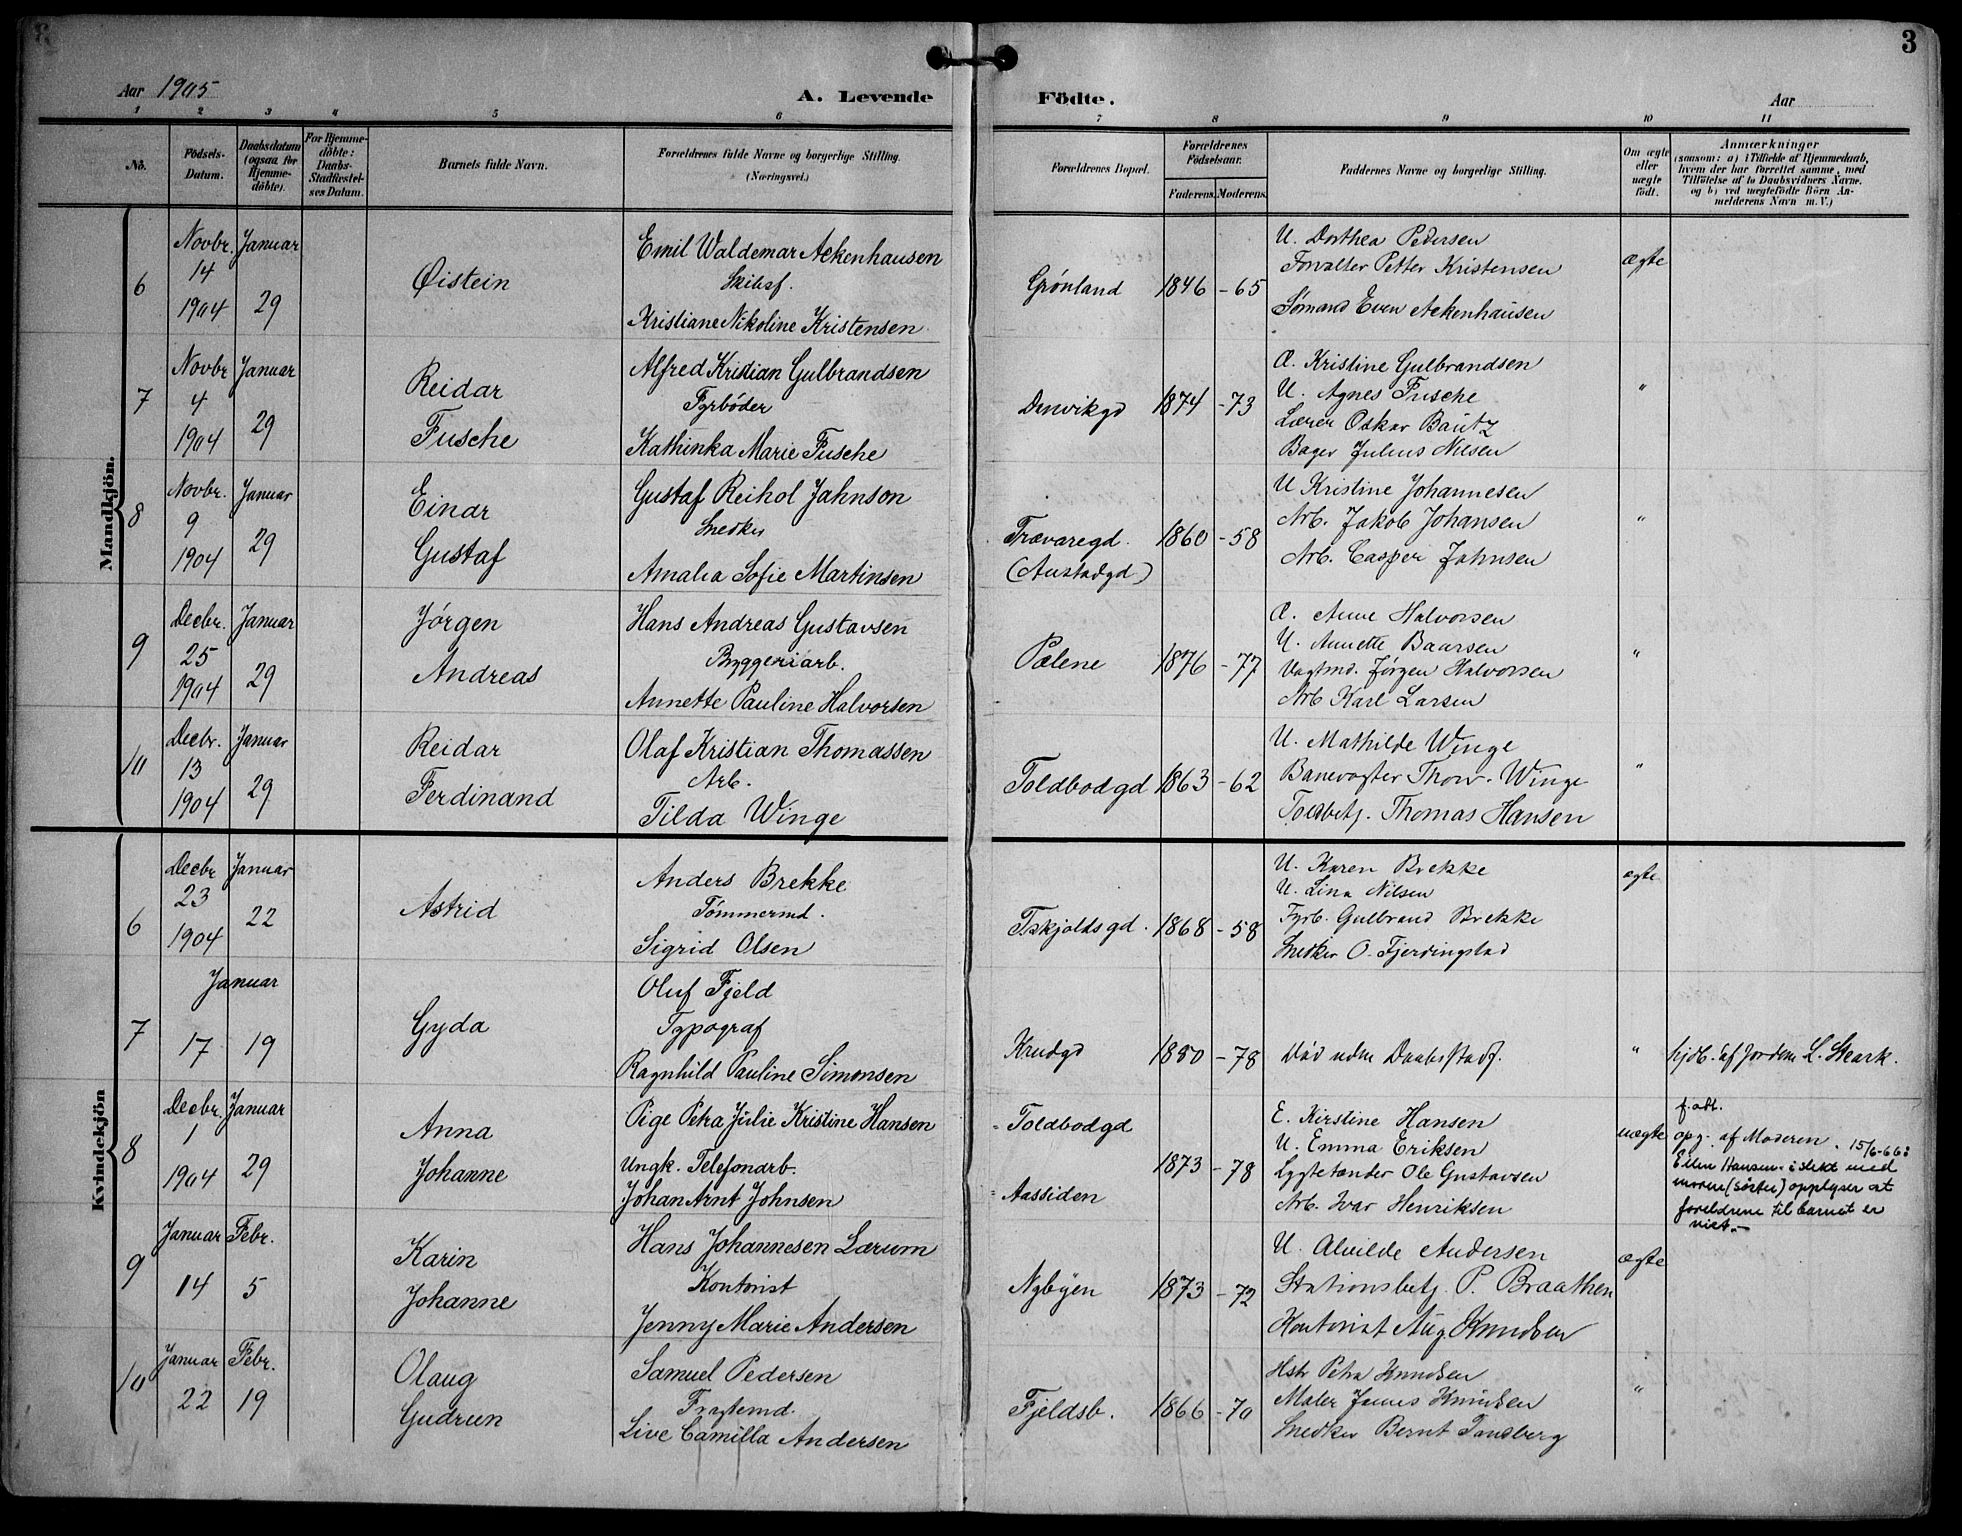 3
Aar 1905
A. Levende
Födte.
Aar
1 2 3 4 5 6 7 8 9 10 11
No.
Födsels-Datum.
Daabsdatum (ogsaa for Hjemmedöbte).
For Hjemmedöbte: Daabs-Stadfæstelses Datum.
Barnets fulde Navn.
Forældrenes fulde Navne og borgerlige Stilling. (Næringsvei.)
Forældrenes Bopæl.
Forældrenes Födselsaar.
Faderens. Moderens.
Faddernes Navne og borgerlige Stilling.
Om ægte eller uægte födt.
Anmærkninger
(saasom: a) i Tilfælde af Hjemmedaab, hvem der har forrettet samme, med Tilföielse af to Daabsvidners Navne. og b) ved uægtefödte Börn Anmelderens Navn m. V.)
Mandkjön.
6
Novbr. 14 1904
Januar 29
Øistein
Emil Waldemar Ackenhausen
Skibsf.
Kristiane Nikoline Kristensen
Grönland
1846 - 65
U. Dorthea Pedersen
Forvalter Petter Kristensen
Sömand Even Ackenhausen
ægte
7
Novbr 4 1904
Januar 29
Reidar
Fusche
Alfred Kristian Gulbrandsen
Fyrböder
Kathinka Marie Fusche
Danvikgd
1874 - 73
E. Kristine Gulbrandsen
U. Agnes Fusche
Lærer Oskar Bautz
Bager Julius Nilsen
"
8
Novbr. 9 1904
Januar 29
Einar
Gustaf
Gustaf Reihol Jahnson
Snedker
Amalia Sofie Martinsen
Trævaregd.
(Austadgd)
1860 - 58
U Kristine Johannesen
Arb. Jakob Johansen
Arb. Casper Jahnsen
"
9
Decbr. 25 1904
Januar 29
Jörgen
Andreas
Hans Andreas Gustavsen
Byggeriarb.
Annette Pauline Halvorsen
Pælene
1876 - 77
E. Anne Halvorsen
U. Annette Baarsen
Vagtmd. Jörgen Halvorsen
Arb Karl Larsen
"
10
Decbr. 13 1904
Januar 29
Reidar
Ferdinand
Olaf Kristian Thomassen
Arb.
Tilda Winge
Toldbodgd
1863 - 62
U. Mathilde Winge
Banevogter Thorv. Winge
Toldbetj. Thomas Hansen
"
Kvindekjön
6
Decbr 23 1904
Januar 22
Astrid
Anders Brekke
Tömmermd.
Sigrid Olsen
Tskjoldsgd.
1868 - 58
U. Karen Brekke
U. Lina Nilsen
Fyrb. Gulbrand Brekke
Snedker O. Fjerdingstad
ægte
7
Januar
17 19
Gyda
Oluf Fjeld
Typograf
Ragnhild Pauline Simonsen
Krudgd
1880 - 78
Död uden Daabsstadf.
"
hjdb. af Jordem L. Skark.
8
Decbr. 1 1904
Januar 29
Anna
Johanne
Pige Petra Julie Kristine Hansen
Ungk. Telefonarb.
Johan Arnt Johnsen
Toldbodgd
Aassiden
1873 - 78
E. Kirstine Hansen
U. Emma Eriksen
Lygtetænder Ole Gustavsen
Arb. Ivar Henriksen
uægte
f. att.
opg. af Moderen. 15/6-66:
Ellen Hansen i slekt med
moren (söster) opplyser at
foreldrene til barnet er
viet.-
9
Januar 14
Febr. 5
Karin
Johanne
Hans Johannesen Lærum
Kontorist
Jenny Marie Andersen
Nybyen
1873 - 72
U. Alvilde Andersen
Stationsbetj. P. Braathen
Kontorist Aug. Knudsen
ægte
10
Januar 22
Febr. 19
Olaug
Gudrun
Samuel Pedersen
Fragtemd.
Live Camilla Andersen
Fjeldsb.
1866 - 70
Hstr Petra Knudsen
Maler James Knudsen
Snedker Bernt Tandberg
"